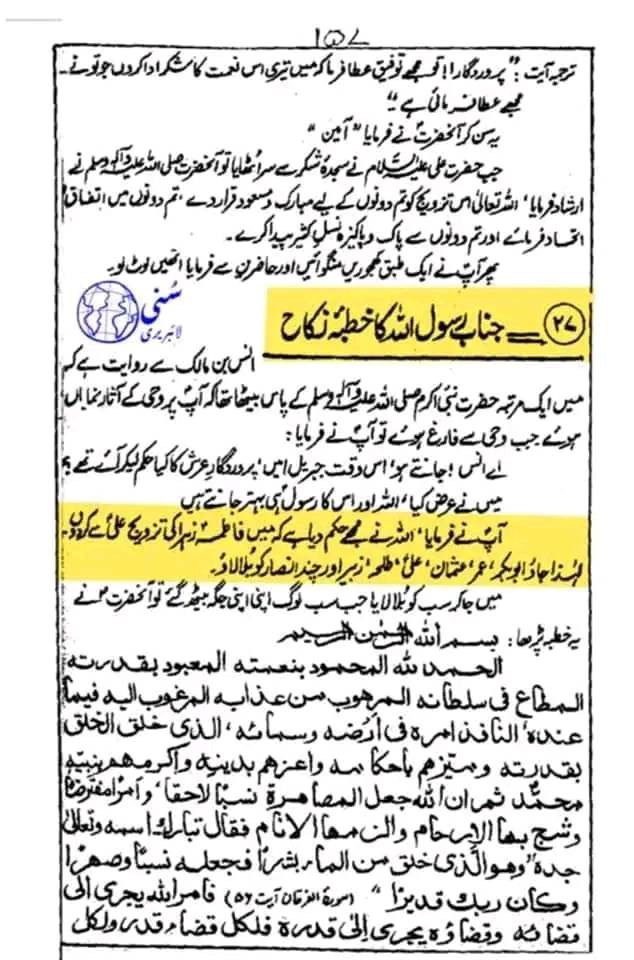 ۱۵۷
ترجمہ آیت : "پروردگارا! تو مجھے توفیق عطا فرما کہ میں تیری اس نعمت کا شکر ادا کروں جو تو نے
مجھے عطا فرمائی ہے"
یہ سن کر آنحضرتؐ نے فرمایا "آمین"
جب حضرت علی علیہ السلام نے سجدۂ شکر سے سر اٹھایا تو آنحضرت صلی اللہ علیہ وآلہ وسلم نے
ارشاد فرمایا، اللہ تعالیٰ اس تزویج کو تم دونوں کے لیے مبارک و مسعود قرار دے، تم دونوں میں اتفاق و
اتحاد فرمائے اور تم دونوں سے پاک و پاکیزہ نسلِ کثیر پیدا کرے۔
پھر آپؐ نے ایک طبق کھجوریں منگوائیں اور حاضرین سے فرمایا انھیں لوٹ لو۔
سُنی
لائبریری
۲۷ = جناب رسول اللہ کا خطبۂ نکاح
انس بن مالک سے روایت ہے کہ
میں ایک مرتبہ حضرت نبی اکرم صلی اللہ علیہ وآلہ وسلم کے پاس بیٹھا تھا کہ آپؐ پر وحی کے آثار نمایاں
ہوئے جب وحی سے فارغ ہوئے تو آپؐ نے فرمایا :
اے انس! جانتے ہو، اس وقت جبریل امیں، پروردگارِ عرش کا کیا حکم لیکر آئے تھے؟
میں نے عرض کیا، اللہ اور اس کا رسول ہی بہتر جانتے ہیں
آپؐ نے فرمایا، اللہ نے مجھے حکم دیا ہے کہ میں فاطمہؑ زہرا کی تزویج علیؑ سے کردوں
لہٰذا جاؤ ابوبکر، عمر، عثمان، علیؑ، طلحہ، زبیر اور چند انصار کو بلا لاؤ۔
میں جا کر سب کو بلا لایا جب سب لوگ اپنی اپنی جگہ بیٹھ گئے تو آنحضرتؐ نے
یہ خطبہ پڑھا : بسم اللہ الرحمٰن الرحیم
الحمد للہ المحمود بنعمتہ المعبود بقدرتہ
المطاع فی سلطانہ المرہوب من عذابہ المرغوب الیہ فیما
عندہ، النافذ امرہ فی اَرضہ وسمائہ، الذی خلق الخلق
بقدرتہ ومیّزہم باحکامہ واعزہم بدینہ واکرمہم بنبیّہ
محمدؐ ثم ان اللہ جعل المصاہرۃ نسبًا لاحقا، وامرًا مفترضًا
وشج بہا الارحام والزمہا الانام فقال تبارک اسمہ وتعالیٰ
جدہ "وھو الّذی خلق من الماء بشرًا فجعلہ نسبًا وصہرًا
وکان ربک قدیرًا" (سورۃ الفرقان آیت ۵۴) فامر اللہ یجری الیٰ
قضائہ وقضاؤہ یجری الیٰ قدرہ فلکل قضاء قدر ولکل